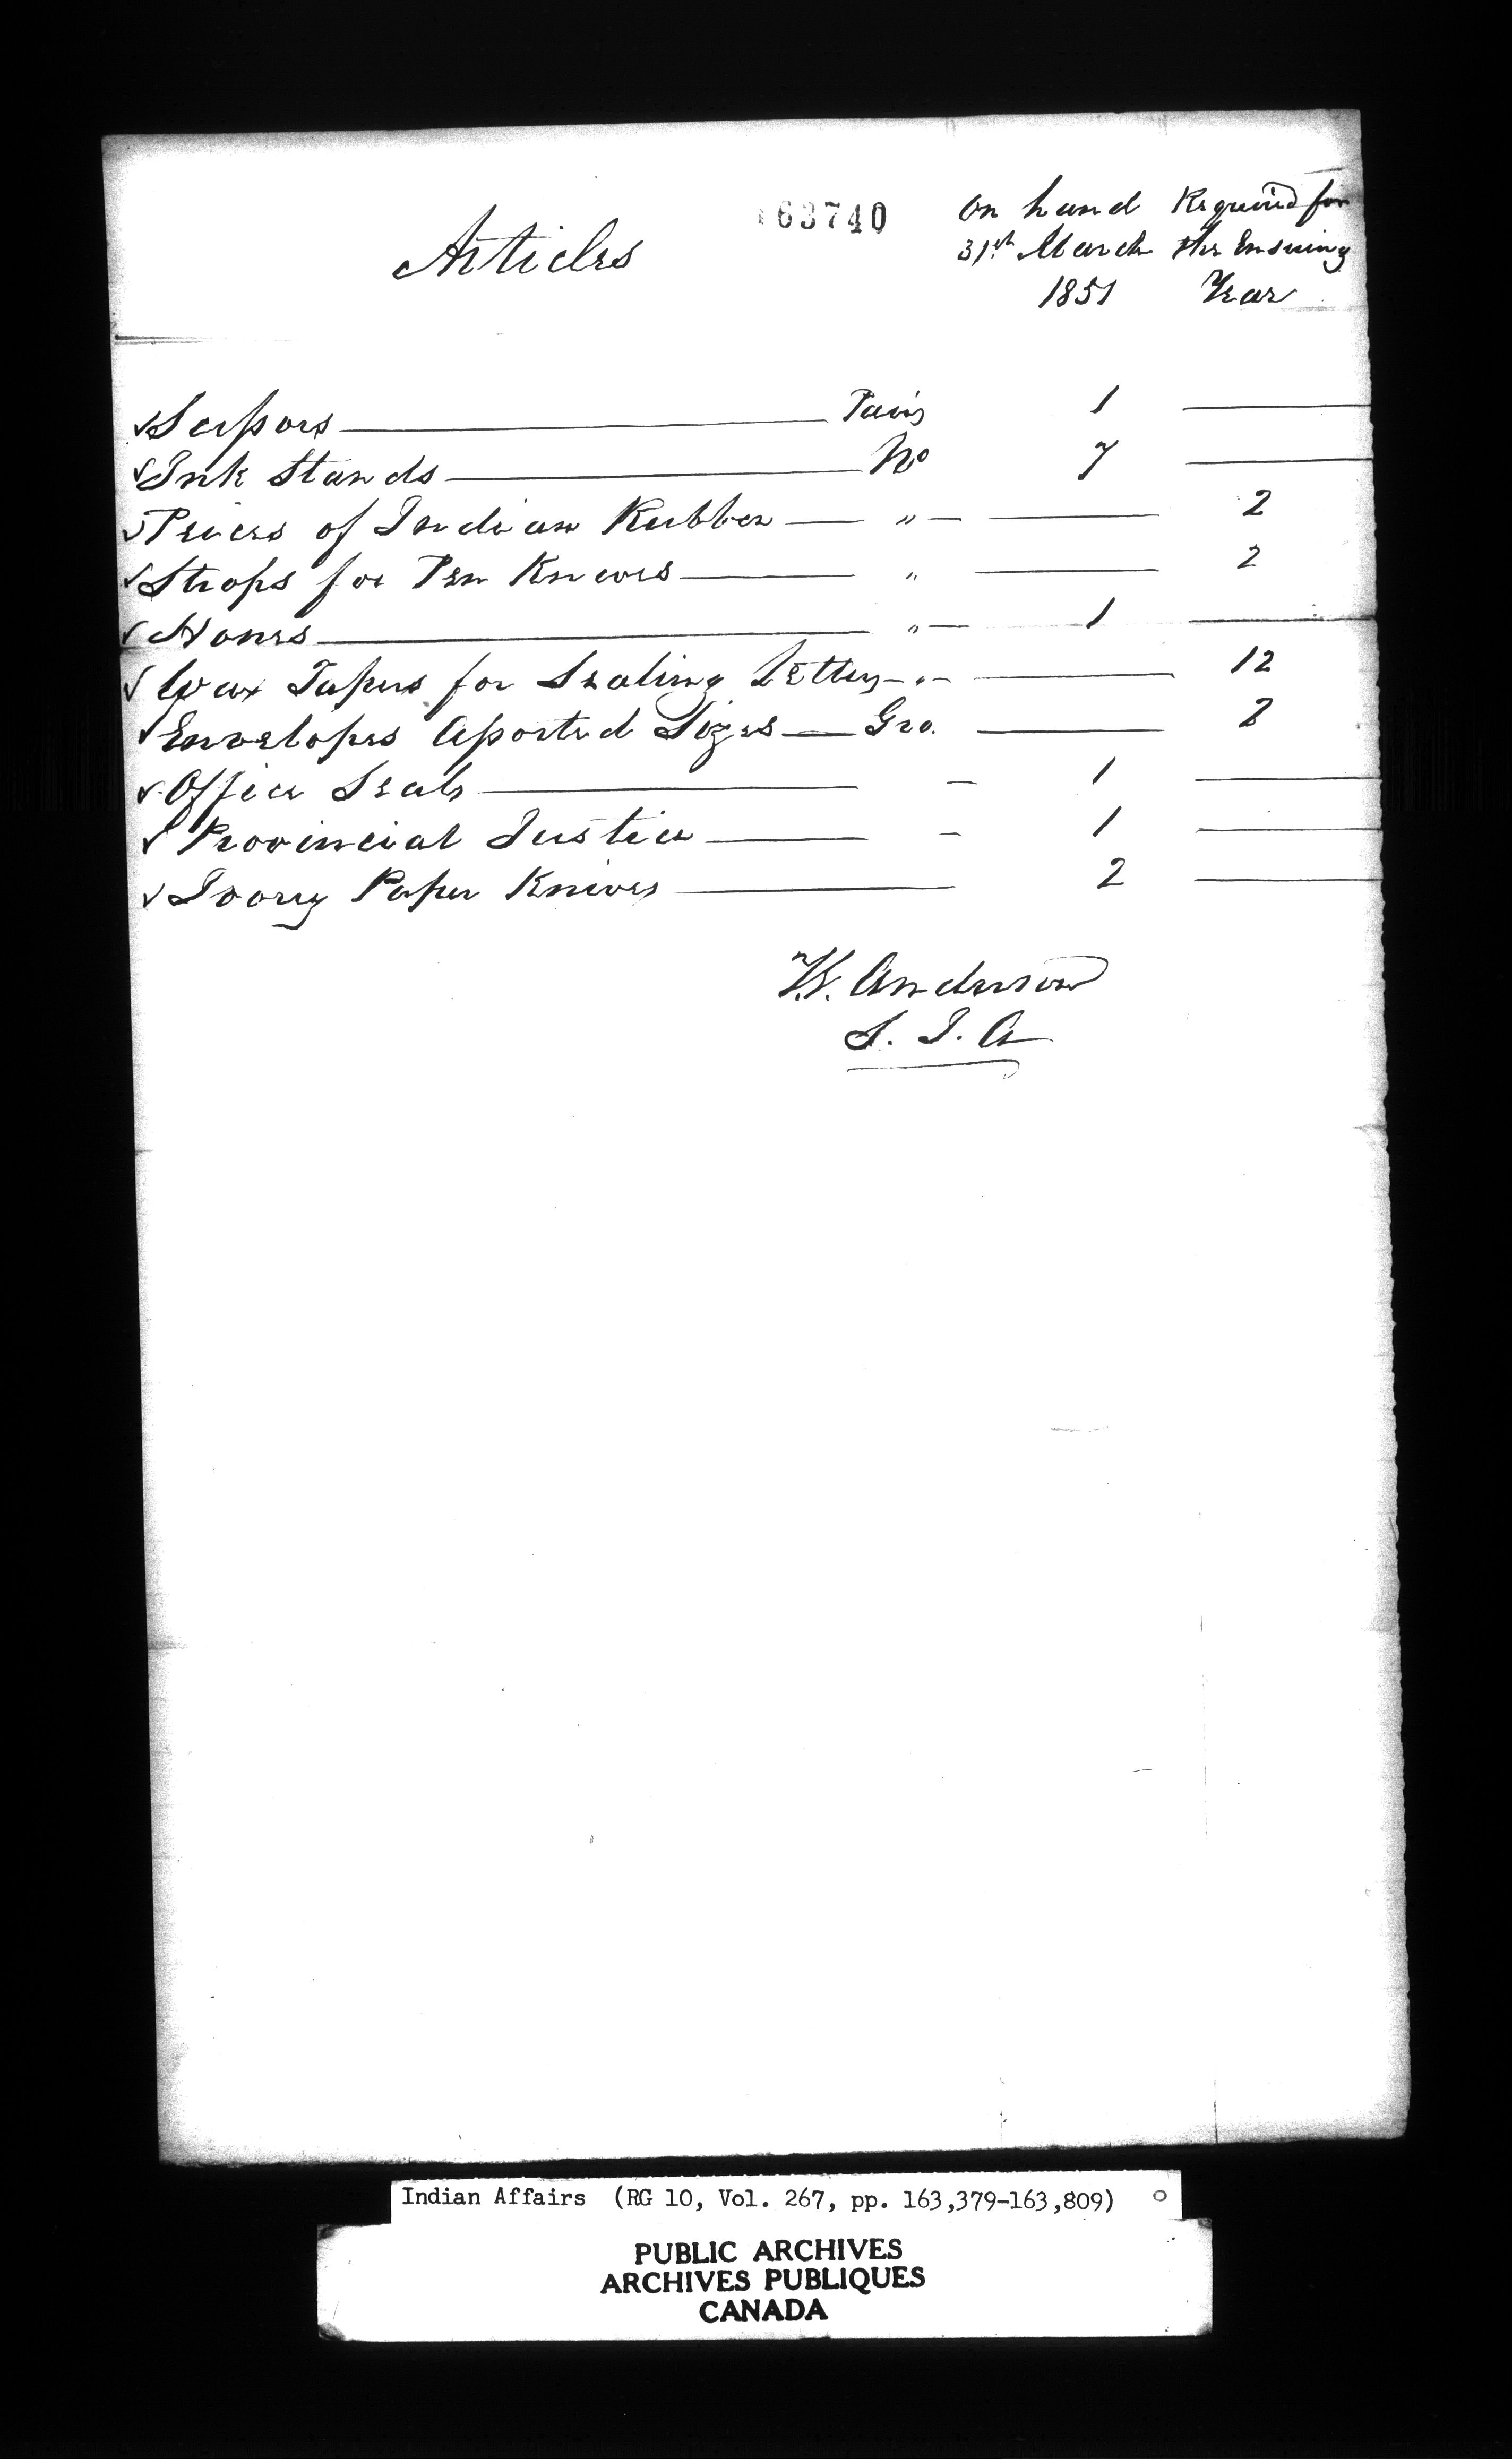 163740
Articles
On hand 31st March 1851
Required for the Ensuing Year
Scissors Pairs 1
Ink Stands No 7
Peices of Indian Rubber " 2
Strops for Pen Knives " 2
Hones " 1
Wax Tapers for Sealing Letters " 12
Envelopes Assorted Sizes Gro. 2
Office Seals 1
Provincial Justice 1
Ivory Paper Knives 2
W. Anderson
S. I. A
Indian Affairs (RG 10, Vol. 267, pp. 163,379-163,809)
PUBLIC ARCHIVES
ARCHIVES PUBLIQUES
CANADA